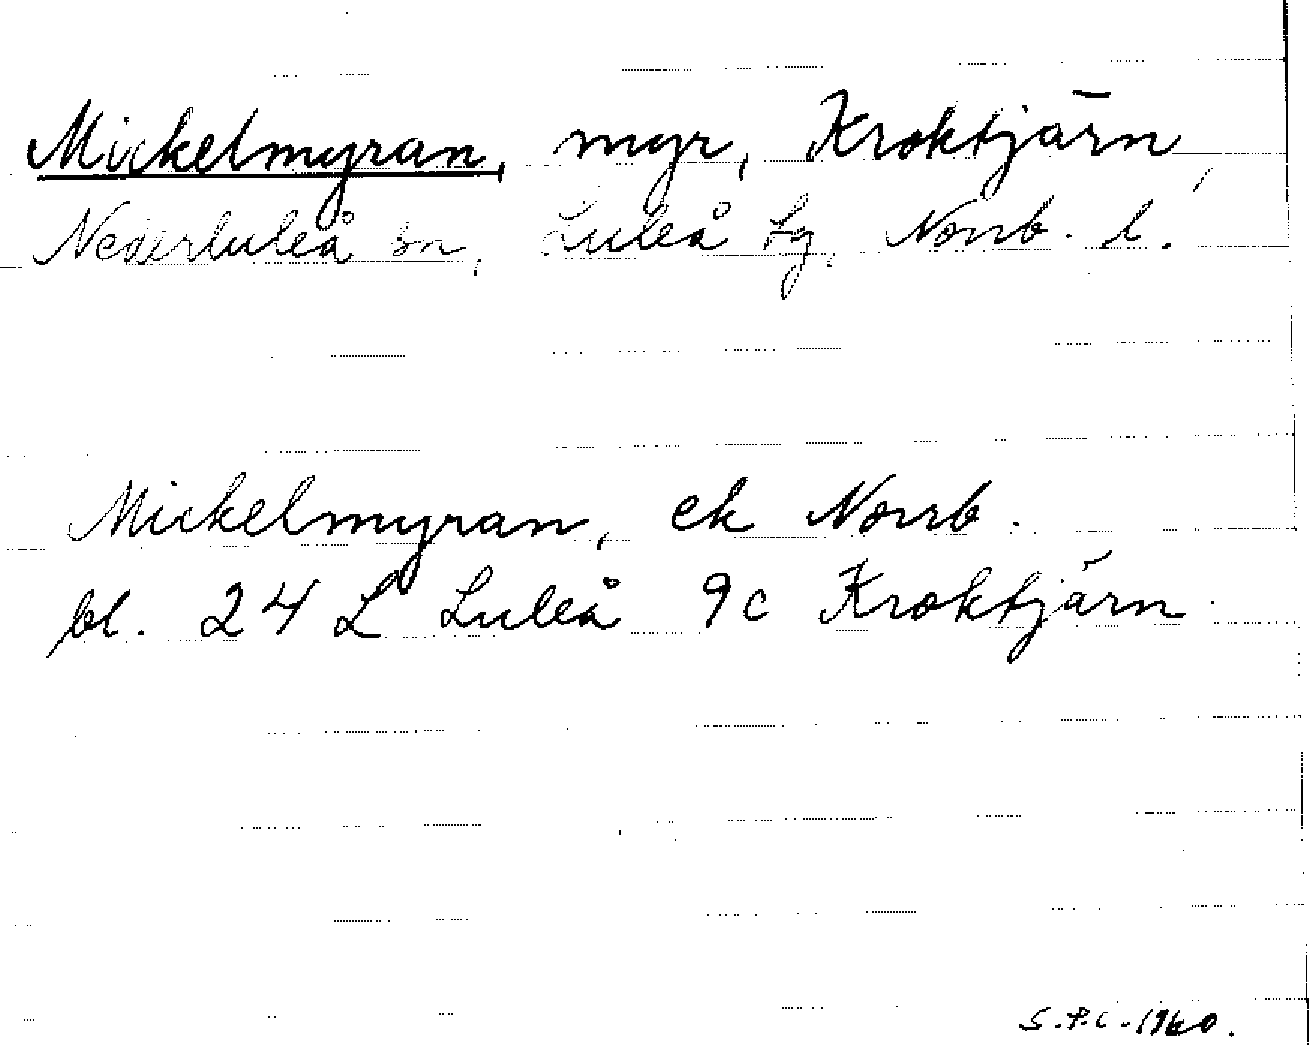 Mickelmyran, myr, Kroktjärn,
Nederluleå sn, Luleå tg, Norrb. l.
Mickelmyran, ek Norrb.
bl. 24 L Luleå 9c Kroktjärn
S.P.C. 1960.